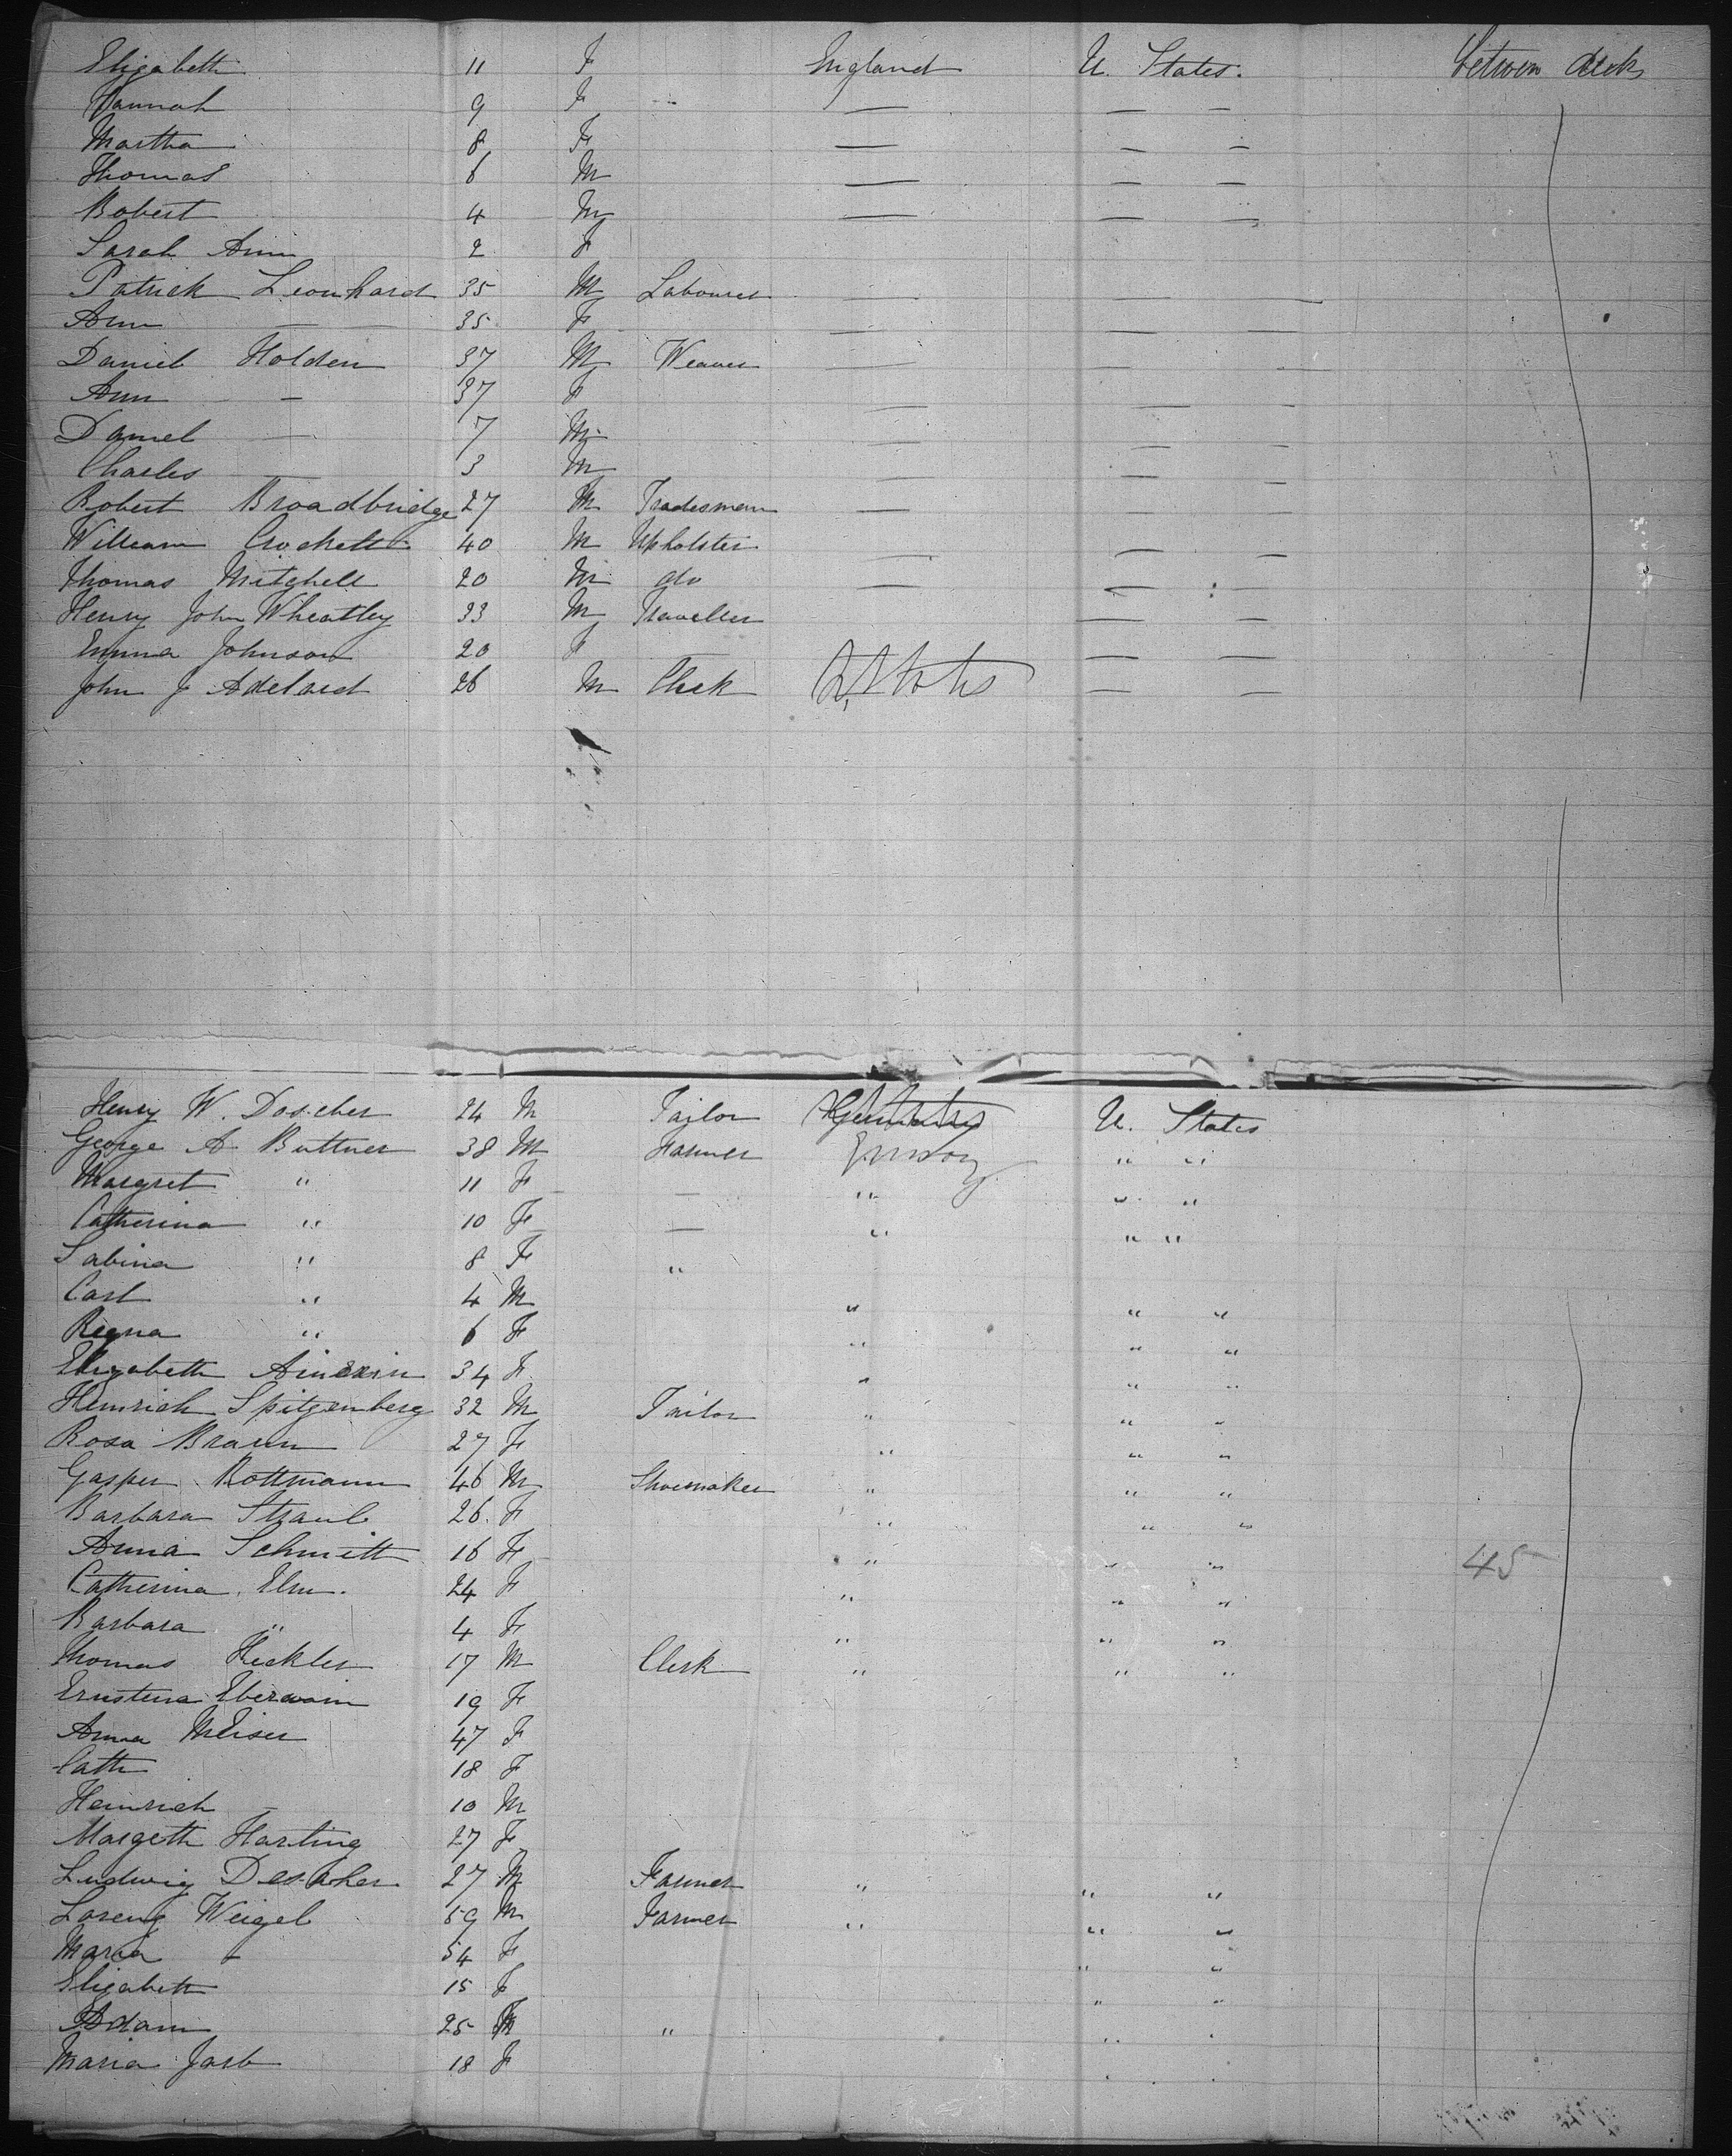 Elizabeth 11 F England U. States. between decks
Hannah 9 F — — —
Martha 8 F — — —
Thomas 6 M — — —
Robert 4 M — — —
Sarah Ann 2 F
Patrick Leonhard 35 M Labourer — — —
Ann — — 35 F — — —
Daniel Holden 37 M Weaver — — —
Ann — 37 F — — —
Daniel — 7 M — — —
Charles — 3 M — — —
Robert Broadbridge 27 M Tradesman — —
William Crockett 40 M Upholster — — —
Thomas Mitghell 20 M do — — —
Henry John Wheatley 33 M Traveller — —
Emma Johnson 20 F — — —
John J Adelard 26 M Clerk U. States — —
Henry W. Doscher 24 M Tailor U. States
George A Buttner 38 M Farmer Germany " "
Margret " 11 F — " " "
Catherina " 10 F — " " "
Sabina " 8 F "
Carl " 4 M " " "
Regna " 6 F " " "
Elizabeth 34 F " " "
Heinrich Spitzenberg 32 M Tailor " " "
Rosa Braun 27 F " " "
Gasper Rottmann 46 M Shoemaker " " "
Barbara Straub 26. F " " "
Anna Schmitt 16 F " " " 45
Catherina Elm. 24 F " " "
Barbara " 4 F " " "
Thomas Heckler 17 M Clerk " " "
Ernstena Eberwain 19 F
Anna Meiser 47 F
Cath 18 F
Heinrich — 10 M
Margeth Harting 27 F
Ludwig 27 M Farmer " " "
Lorenz Weigel 59 M Farmer " " "
Maria - 54 F " "
Elizabeth 15 F " "
Adam 25 M " " "
Maria Jarb 18 F " "